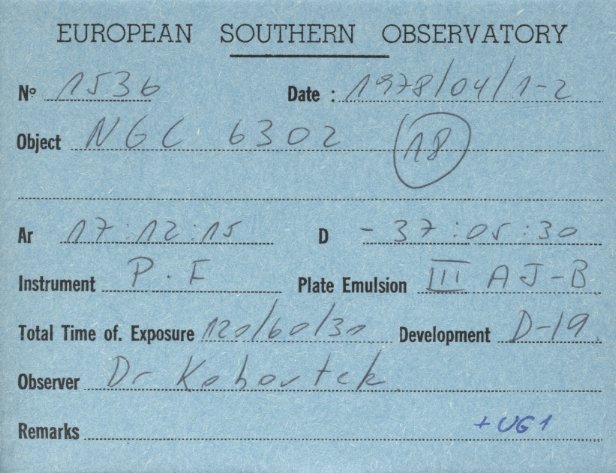 EUROPEAN SOUTHERN OBSERVATORY
Nº 1536 Date : 1978/04/1-2
Object NGC 6302 18
Ar 17:12:15 D -37:05:30
Instrument P.F Plate Emulsion III AJ-B
Total Time of. Exposure 120/60/30 Development D-19
Observer Dr Kohoutek
Remarks +UG1